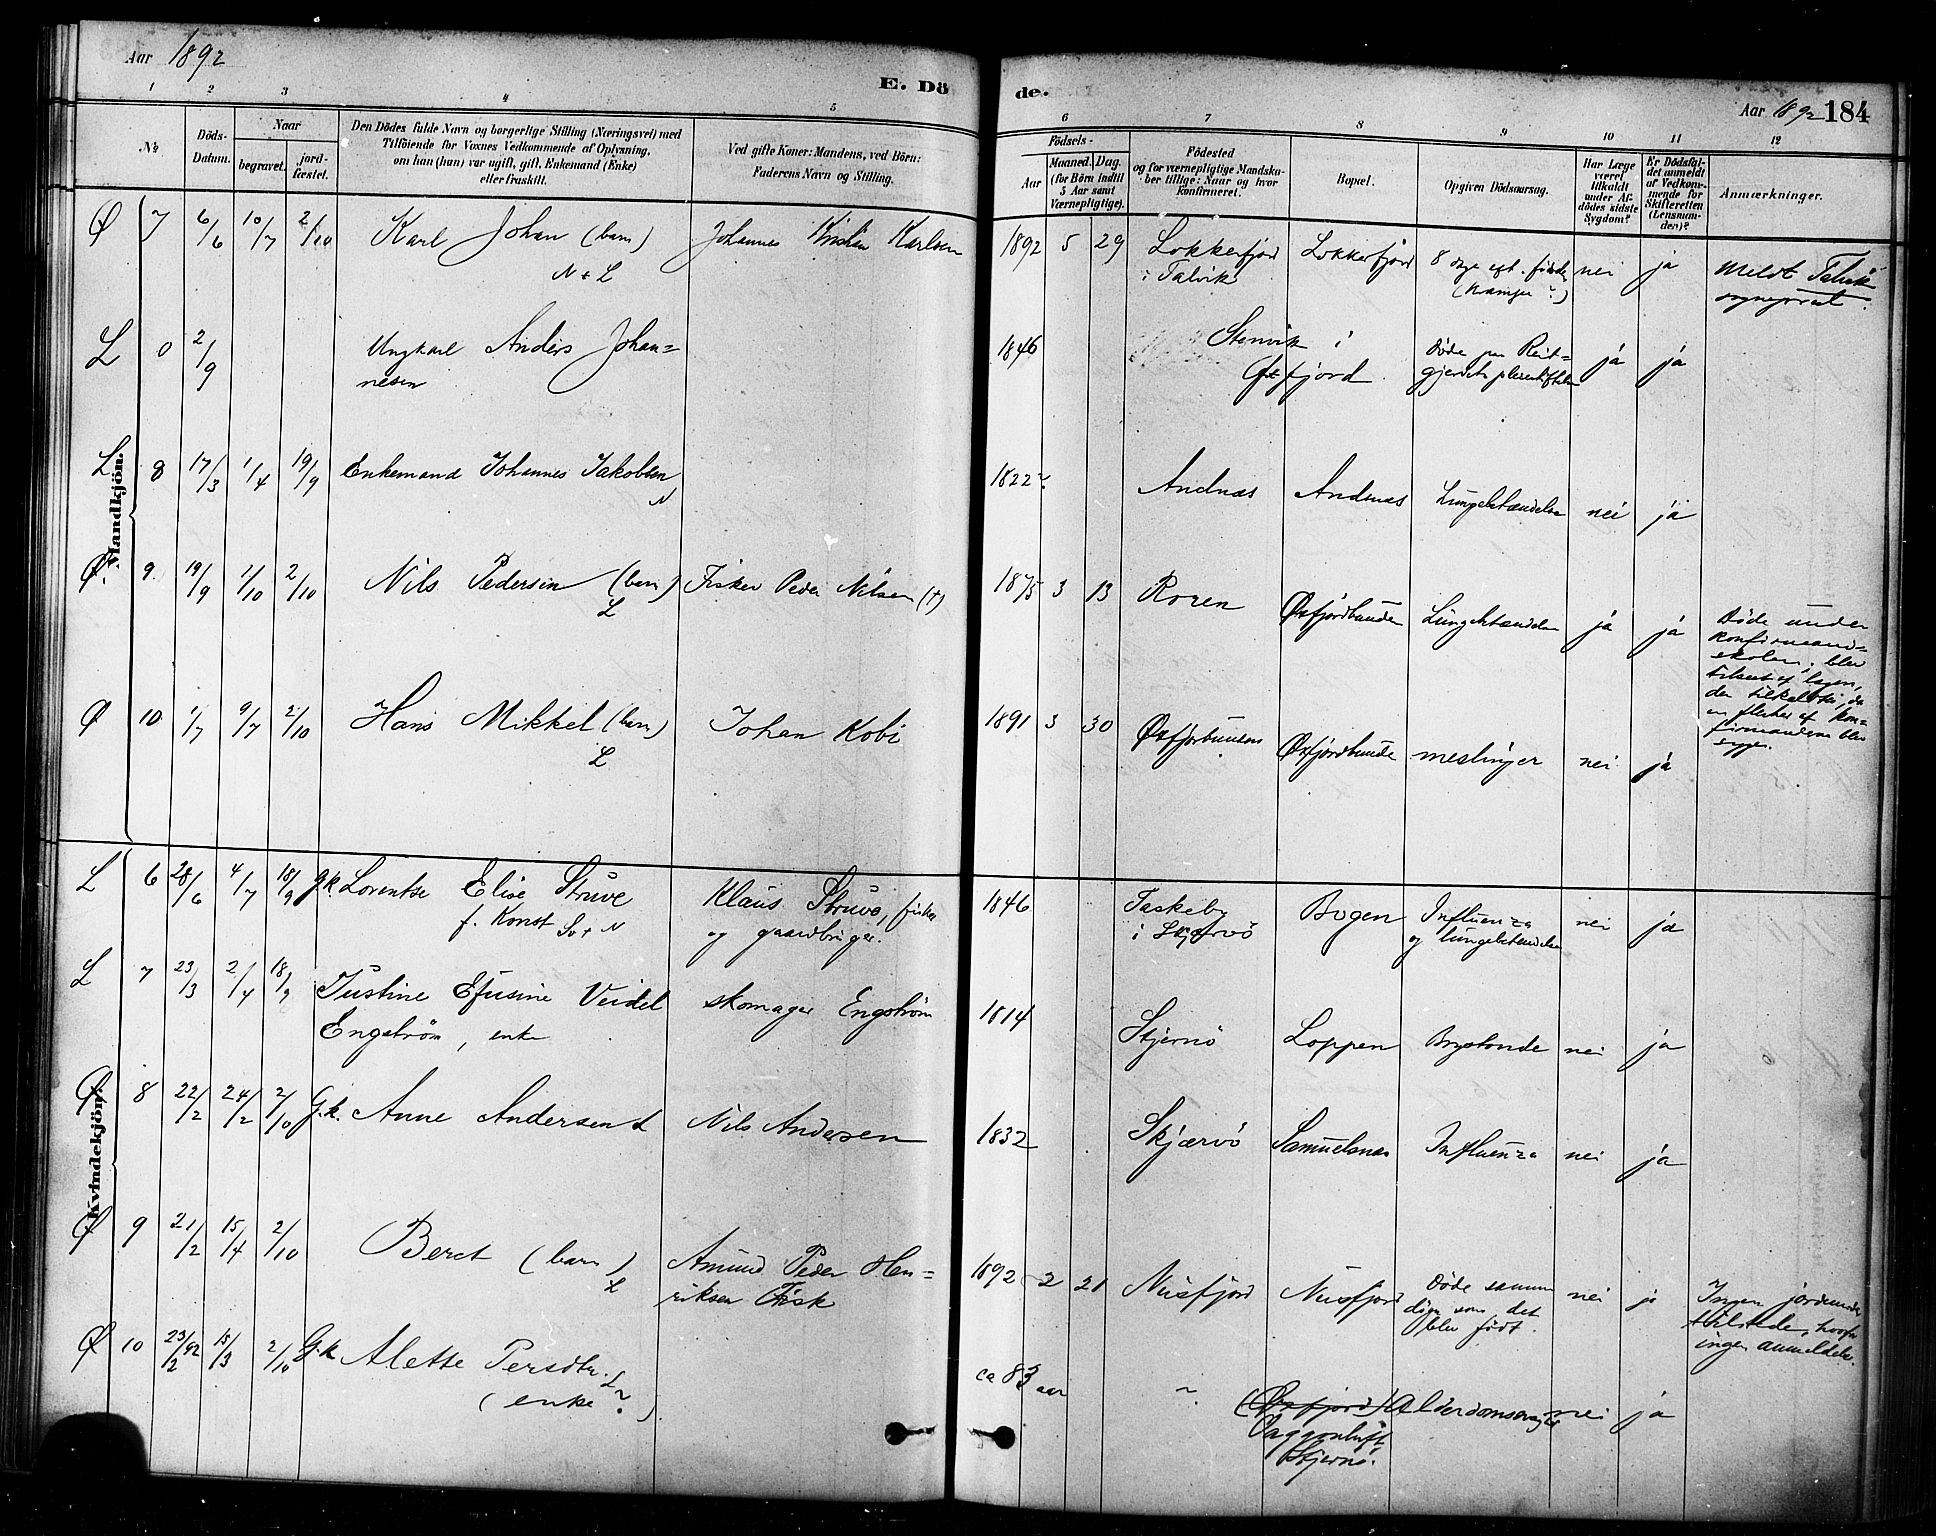 Aar 1892
E. Dö
de.
Aar 1892 184
1 2 3 4 5 6 7 8 9 10 11 12
No
Döds-
Datum.
Naar
begravet.
jord-
fæstet.
Den Dödes fulde Navn og borgerlige Stilling (Næringsvei) med
Tilföiende for Voxnes Vedkommende af Oplysning,
om han (hun) var ugift, gift, Enkemand (Enke)
eller fraskilt.
Ved gifte Koner: Mandens, ved Börn:
Faderens Navn og Stilling.
Födsels-
Aar
Maaned. Dag.
(for Börn indtil
5 Aar samt
Værnepligtige).
Födested
og for værnepligtige Mandska-
ber tillige: Naar og hvor
konfirmeret.
Bopæl.
Opgiven Dödsaarsag.
Har Læge
været
tilkaldt
under Af-
dödes sidste
Sygdom?
Er Dödsfal-
det anmeldt
af Vedkom-
mende for
Skifteretten
(Lensman-
den)?
Anmærkninger.
Mandkjön.
Ø 7 6/6 10/7 2/10 Karl Johan (barn) Johannes Karlsen
N + L
1892 5 29 Lokkerfjord Lokkerfjord 8 dage eft. nei ja meldt Talvik
i Talvik (krampe?) sogneprest.
L 0 2/9 Ungkarl Anders Johan=
nesen
1846 Stenvik i Døde paa Reit= ja ja
Øxfjord. gjerdets pleiestiftelse
L 8 17/3 1/4 19/9 Enkemand Johannes Jakobsen
N
1822? Andnæs Andnæs Lungebetændelse nei ja
Ø 9. 19/9 1/10 2/10 Nils Pedersen (barn) Fisker Peder Nilsen (†)
L
1875 3 13 Øxfjordbunden Lungebetændelse ja ja Døde under
konfirmand=
skolen, blev
tilseet af lægen,
der tilkaldtes, da
en flerhed af kon=
firmanderne blev
syge.
Ø 10. 1/7 9/7 2/10 Hans Mikkel (barn) Johan Kobi
L
1891 3 30 Øxfjorbunden Øxfjordbunde meslinger nei ja
Kvindekjön.
L 6 28/6 4/7 18/9 gk. Lorentse Elise Struve Klaus Struve, fisker
f. Konst Sv + N og gaardbruger.
1846 Taskeby Bogen Influenza nei ja
i Skjervö og lungebetændelse
L 7 23/3 2/4 18/9 Justine Efusine Veidel skomager Engström
Engström, enke
1814 Stjernö Loppen Brystonde nei ja
Ø 8 22/2 24/2 2/10 G.k. Anne Andersen L Nils Andersen
1832 Skjærvö Samuelsnæs Influenza nei ja
Ø 9 21/2 15/4 2/10 Beret (barn) Amund Peder Hen=
L riksen Fisk
1892 2 21 Nusfjord Nusfjord Døde samme nei ja Ingen jordmoder
dag som det tilstede, hvorfor
blev født. ingen anmeldelse.
Ø 10 23/2 92 15/3 2/10 G.k Alette Persdtr. L?
(enke)
ca 83 aar ~ (Øxfjord) Alderdomssvaghed nei ja
Stjernö.